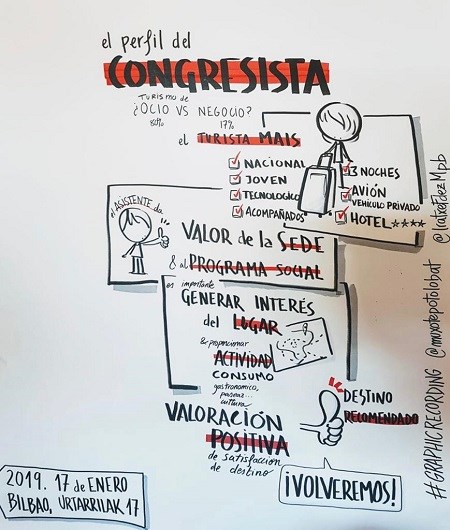 el perfil del
CONGRESISTA
TURISMO de
¿OCIO VS NEGOCIO?
80% 17%
el TURISTA MAIS
NACIONAL
JOVEN
TECNOLÓGICO
ACOMPAÑADOS
3 NOCHES
AVIÓN
VEHICULO PRIVADO
HOTEL ****
el ASISTENTE da
VALOR de la SEDE
& al PROGRAMA SOCIAL
es importante
GENERAR INTERÉS
del LUGAR
& proporcionar
ACTIVIDAD
CONSUMO
gastronómico,
paseos...
cultura
VALORACIÓN
POSITIVA
de satisfacción
de destino
DESTINO
RECOMENDADO
¡VOLVEREMOS!
2019. 17 de ENERO
BILBAO, URTARRILAK 17
#GRAPHICRECORDING @moxotepotolobat @IratxeFdezMpb